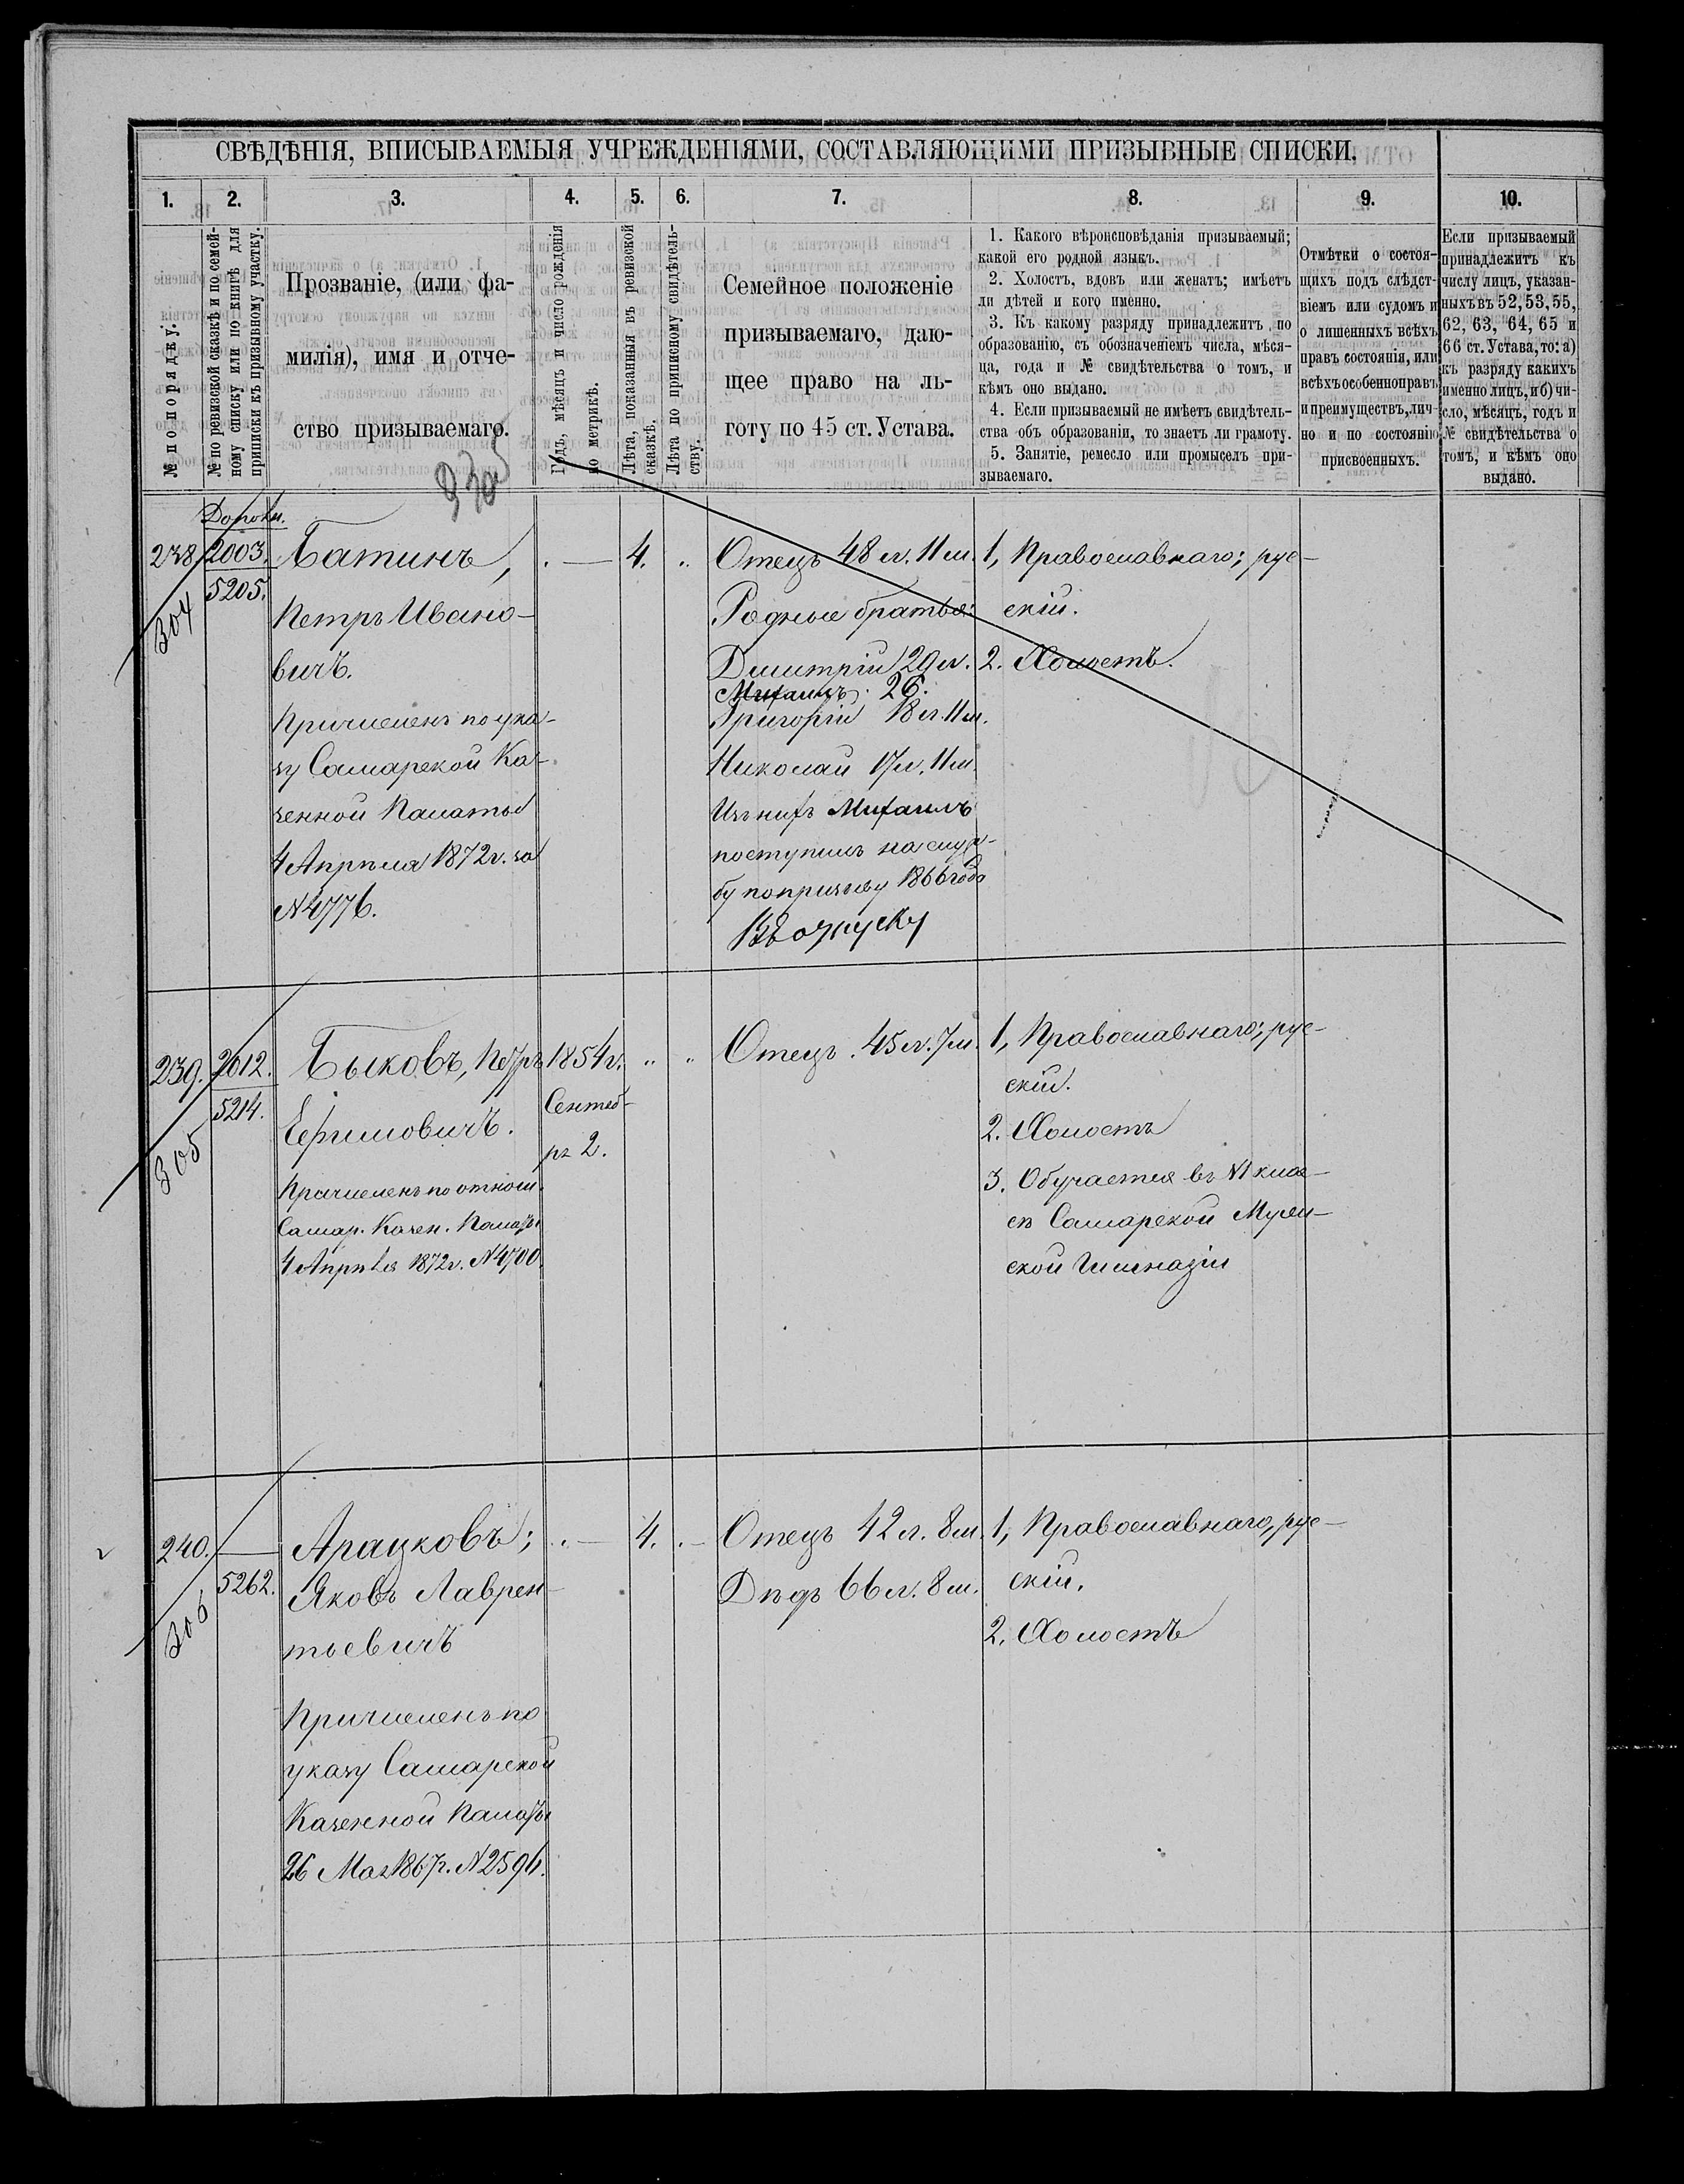 СВѢДѢНІЯ, ВПИСЫВАЕМЫЯ УЧРЕЖДЕНІЯМИ, СОСТАВЛЯЮЩИМИ ПРИЗЫВНЫЕ СПИСКИ.
1. 2. 3. 4. 5. 6. 7. 8. 9. 10.
№ по порядку.
№ по ревизской сказкѣ и по семей-
ному списку или по книгѣ для
приписки къ призывному участку.
Прозваніе, (или фа-
милія), имя и отче-
ство призываемаго.
Годъ, мѣсяцъ и число рожденія
по метрикѣ.
Лѣта, показанныя въ ревизской
сказкѣ.
Лѣта по приписному свидѣтель-
ству.
Семейное положеніе
призываемаго, даю-
щее право на ль-
готу по 45 ст. Устава.
1. Какого вѣроисповѣданія призываемый;
какой его родной языкъ.
2. Холостъ, вдовъ или женатъ; имѣетъ
ли дѣтей и кого именно.
3. Къ какому разряду принадлежитъ по
образованію, съ обозначеніемъ числа, мѣся-
ца, года и № свидѣтельства о томъ, и
кѣмъ оно выдано.
4. Если призываемый не имѣетъ свидѣтель-
ства объ образованіи, то знаетъ ли грамоту.
5. Занятіе, ремесло или промыселъ при-
зываемаго.
Отмѣтки о состоя-
щихъ подъ слѣдст-
віемъ или судомъ и
о лишенныхъ всѣхъ
правъ состоянія, или
всѣхъ особенно правъ
и преимуществъ, лич-
но и по состоянію
присвоенныхъ.
Если призываемый
принадлежитъ къ
числу лицъ, указан-
ныхъ въ 52, 53, 55,
62, 63, 64, 65 и
66 ст. Устава, то: а)
къ разряду какихъ
именно лицъ, и б) чи-
сло, мѣсяцъ, годъ и
№ свидѣтельства о
томъ, и кѣмъ оно
выдано.
238
304
2003.
5205.
Батинъ,
Петръ Ивано-
вичъ.
Причисленъ по ука-
зу Самарской Ка-
зенной Палаты
4 Апрѣля 1872 г. за
№ 4776.
4.
Отецъ 48 л. 11 м.
Родные братья:
Димитрій 29 л.
Михаилъ 26.
Григорій 18 л. 11 м.
Николай 17 л. 11 м.
Изъ нихъ Михаилъ
поступилъ на служ-
бу по призыву 1866 года
1, Православнаго; рус-
скій.
2. Холостъ.
239.
305
2012.
5214.
Быковъ, Петръ
Ефимовичъ.
Причисленъ по отнош.
Самар. Казен. Палаты
4 Апрѣля 1872 г. № 4700
1854 г.
Сентяб-
ря 2.
Отецъ. 45 л. 7 м.
1, Православнаго; рус-
скій.
2. Холостъ
3. Обучается въ VI клас-
сѣ Самарской Муж-
ской Гимназіи
240.
306
5262.
Арацковъ;
Яковъ Лаврен-
тьевичъ
Причисленъ по
указу Самарской
Казенной Палаты
26 Мая 1867 г. № 2596.
4.
Отецъ 42 л. 8 м.
Дѣдъ 66 л. 8 м.
1, Православнаго, рус-
скій.
2. Холостъ